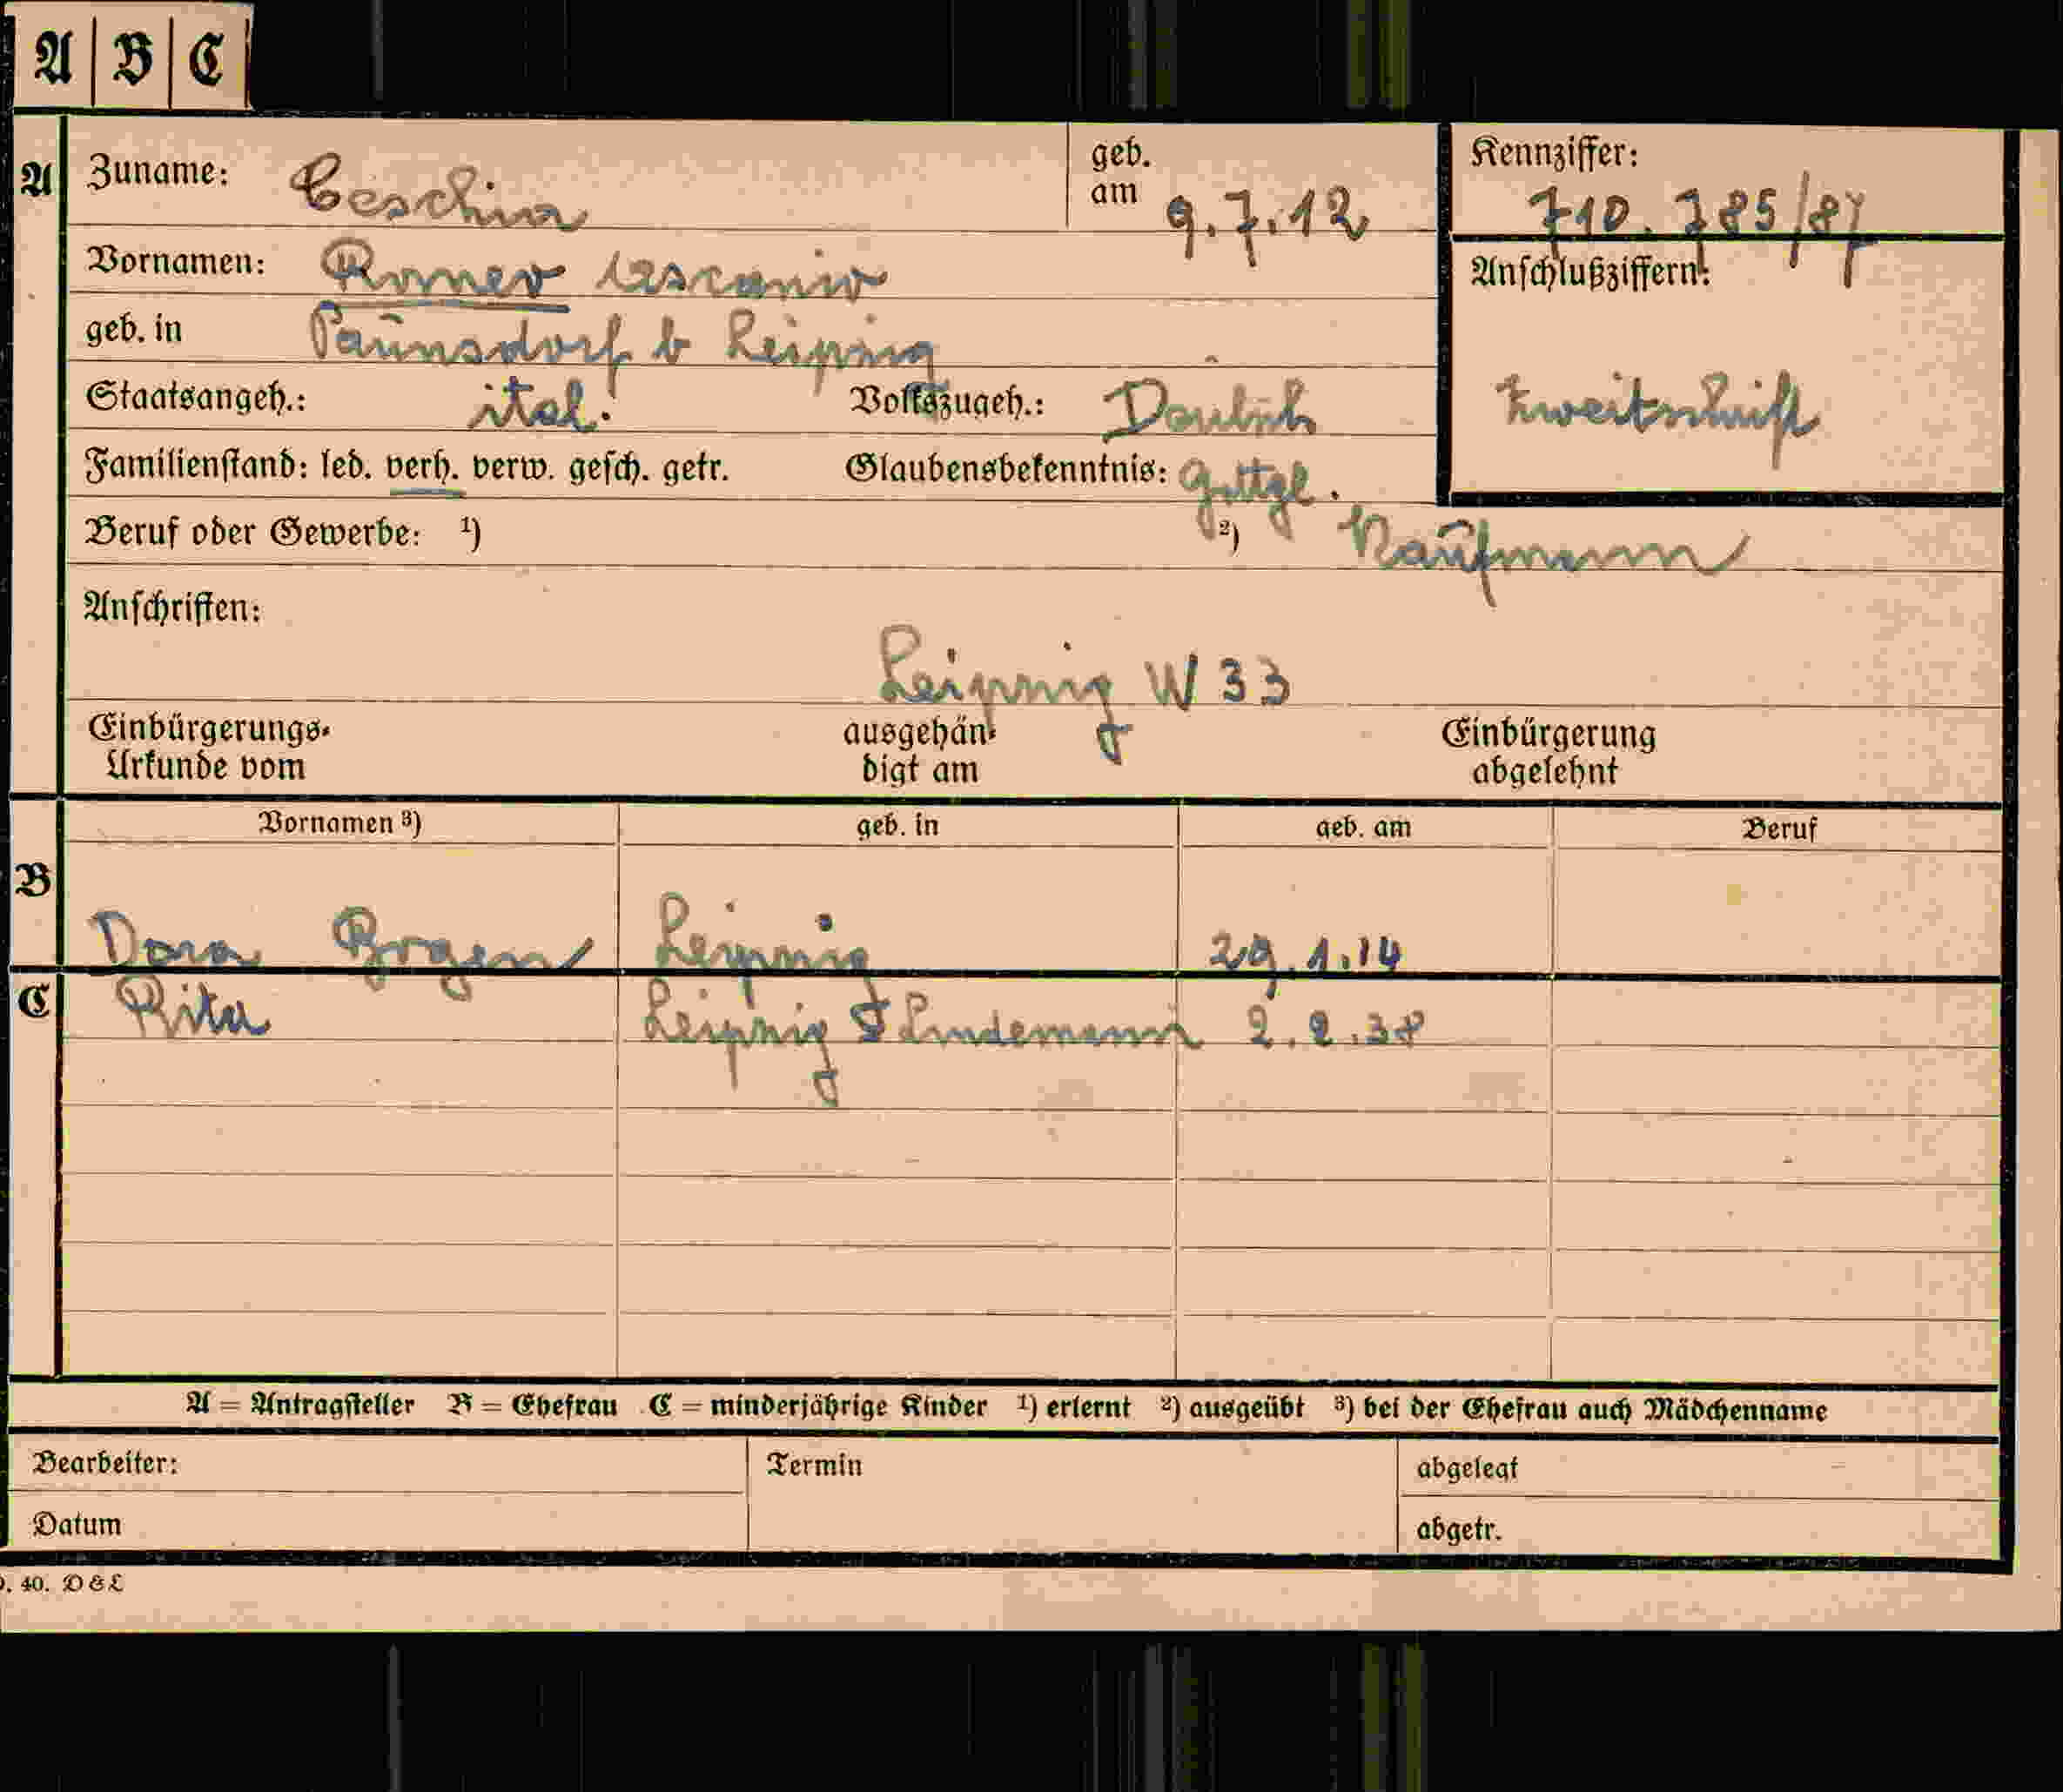 A B C
A
Zuname: Ceschin
geb. am 9.7.12
Kennziffer: 710.785/87
Vornamen: Romeo Ascanio
Anschlußziffern:
geb. in Paunsdorf b Leipzig
Staatsangeh.: ital. Volkszugeh.: Deutsch
Zweitschrift
Familienstand: led. verh. verw. gesch. getr. Glaubensbekenntnis: Gottgl.
Beruf oder Gewerbe: 1) 2) Kaufmann
Anschriften:
Leipzig W 33
Einbürgerungs-
Urkunde vom
ausgehän-
digt am
Einbürgerung
abgelehnt
Vornamen 3) geb. in geb. am Beruf
B
Dora Bogen Leipzig 29.1.14
C
Rita Leipzig Lindemann 2.2.38
A = Antragsteller B = Ehefrau C = minderjährige Kinder 1) erlernt 2) ausgeübt 3) bei der Ehefrau auch Mädchenname
Bearbeiter: Termin abgelegt
Datum abgetr.
40. D & L